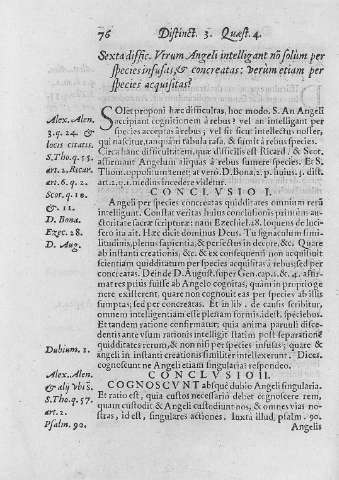 76 Distinct. 3. Quæst. 4.
Sexta diffic. Vtrum Angeli intelligant nõ solùm per
species infusas, & concreatas: verùm etiam per
species acquisitas?
Alex. Alen.
3. q. 24. &
locis citatis.
S. Tho. q. 55.
art. 2. Ricar.
art. 6. q. 2.
Scot. q. 10.
& 11.
D. Bona.
Ezec. 28.
D. Aug.
SOlet proponi hæc difficultas, hoc modo. S. An Angeli
accipiant cognitionem à rebus? vel an intelligant per
species acceptas à rebus; vel sit sicut intellectus noster,
qui nascitur, tanquàm tabula rasa, & sumit à rebus species.
Circa hanc difficultatem, quæ difficilis est Ricard. & Scot.
affirmant Angelum aliquas à rebus sumere species. Et S.
Thom. oppositum tenet: at verò D. Bona. 2. p. huius 3. dist.
art. 2. q. 1. medius incedere videtur.
CONCLVSIO I.
Angeli per species concreatas quidditates omnium rerũ
intelligunt. Constat veritas huius conclusionis primùm au-
ctoritate sacræ scripturæ: nam Ezechiel. 28. loquens de luci-
fero ita ait. Hæc dicit dominus Deus. Tu signaculum simi-
litudinis, plenus sapientia, & perfectus in decore. &c. Quare
ab instanti creationis, &c. & ex consequenti non acquisiuit
scientiam quidditatum per species acquisitas à rebus, sed per
concreatas. Deinde D. August. super Gen. cap. 1. & 4. affir-
mat res priùs fuisse ab Angelo cognitas, quam in proprio ge
nere existerent, quare non cognouit eas per species ab illis
sumptas, sed per concreatas. Et in lib. de causis scribitur,
omnem intelligentiam esse plenam formis, idest, speciebus.
Et tandem ratione confirmatur: quia anima paruuli disce-
dentis ante vsum rationis intelligit statim post separationẽ
quidditates rerum, & non nisi per species infusas; quare &
angeli in instanti creationis similiter intellexerunt.
Dubium. 1.
Dices.
cognoscunt ne Angeli etiam singularia? respondeo.
Alex. Alen.
& alij vbi S.
S. Tho. q. 57.
art. 2.
Psalm. 90.
CONCLVSIO II.
COGNOSCVNT absquè dubio Angeli singularia.
Et ratio est, quia custos necessariò debet cognoscere rem,
quam custodit & Angeli custodiunt nos, & omnes vias no-
stras, id est, singulares actiones. Iuxtà illud, psalm. 90.
Angelis